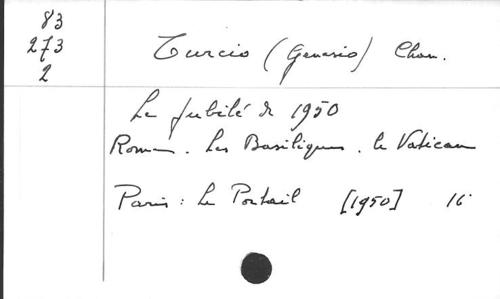 83
273
2
Turcio (Genesio) Chan.
Le Jubilé de 1950
Rome. Les Basiliques. le Vatican
Paris : Le Portail [1950] 16°